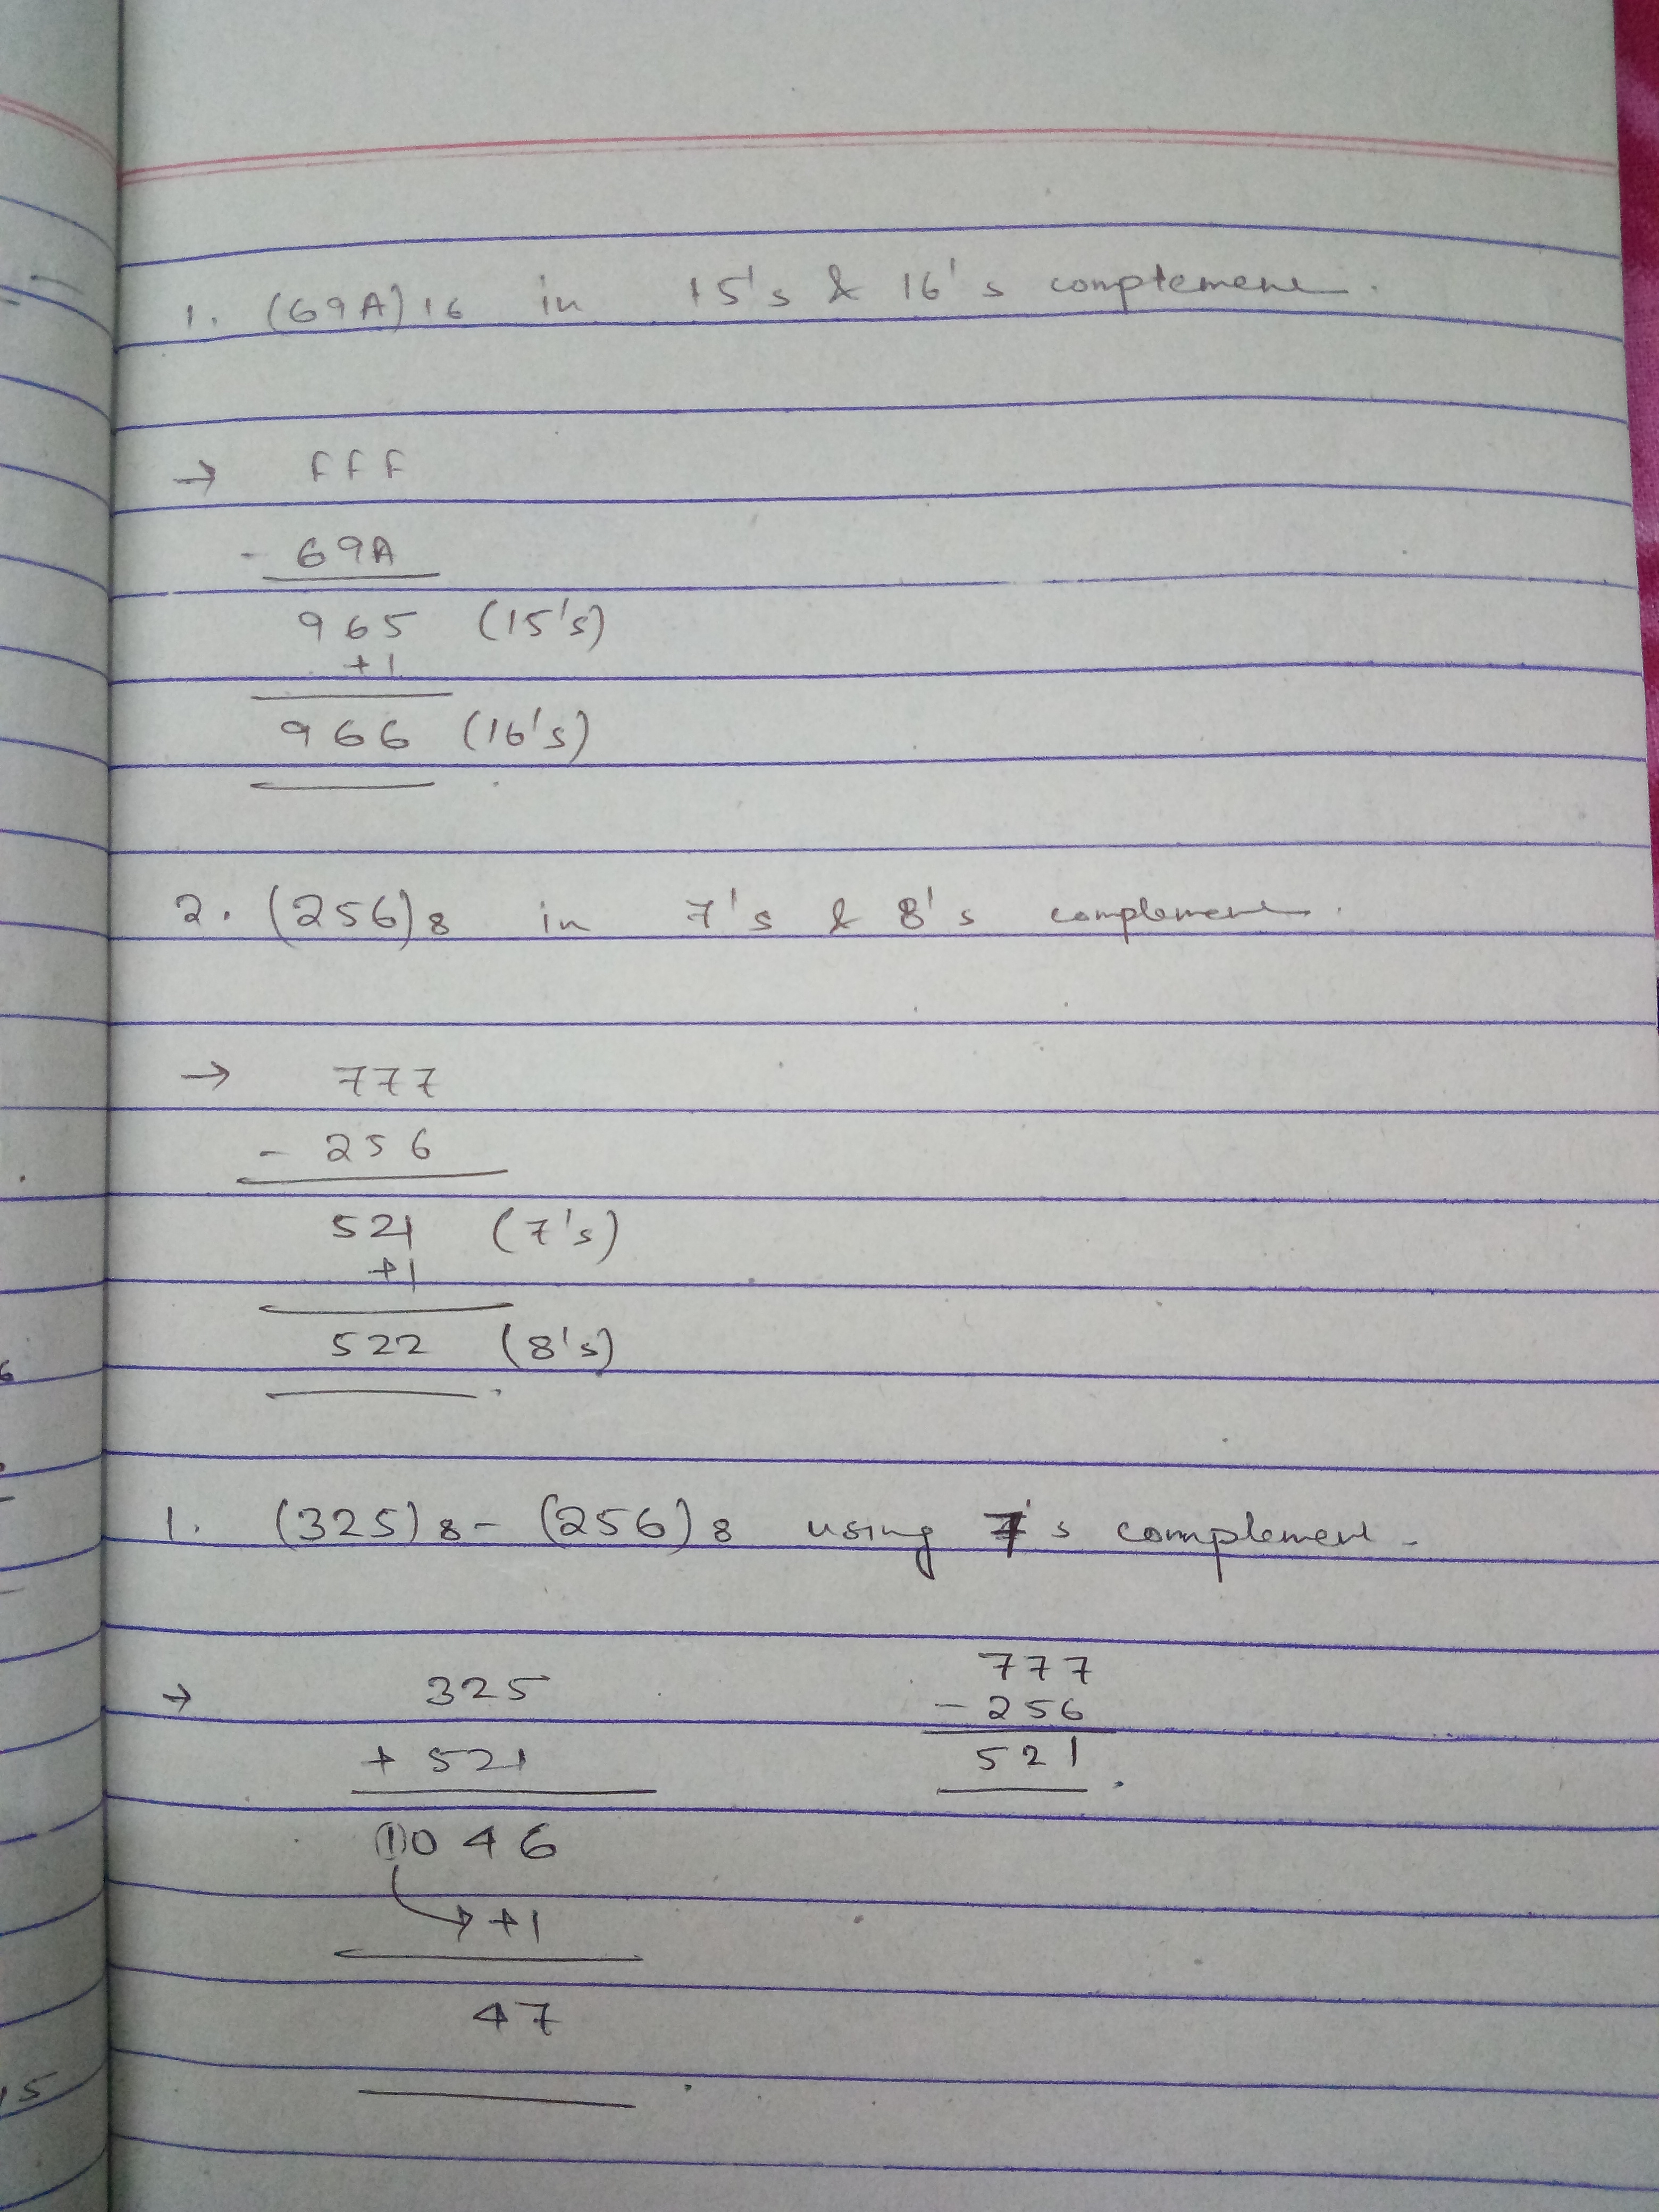 1. (69A)16 in 15's & 16's complement.
→ FFF
- 69A
965 (15's)
+1
966 (16's)
2. (256)8 in 7's & 8's complement.
→ 777
- 256
521 (7's)
+1
522 (8's)
1. (325)8 - (256)8 using 7's complement.
→ 325 777
- 256
+ 521 521.
①046
→ +1
47
6
15